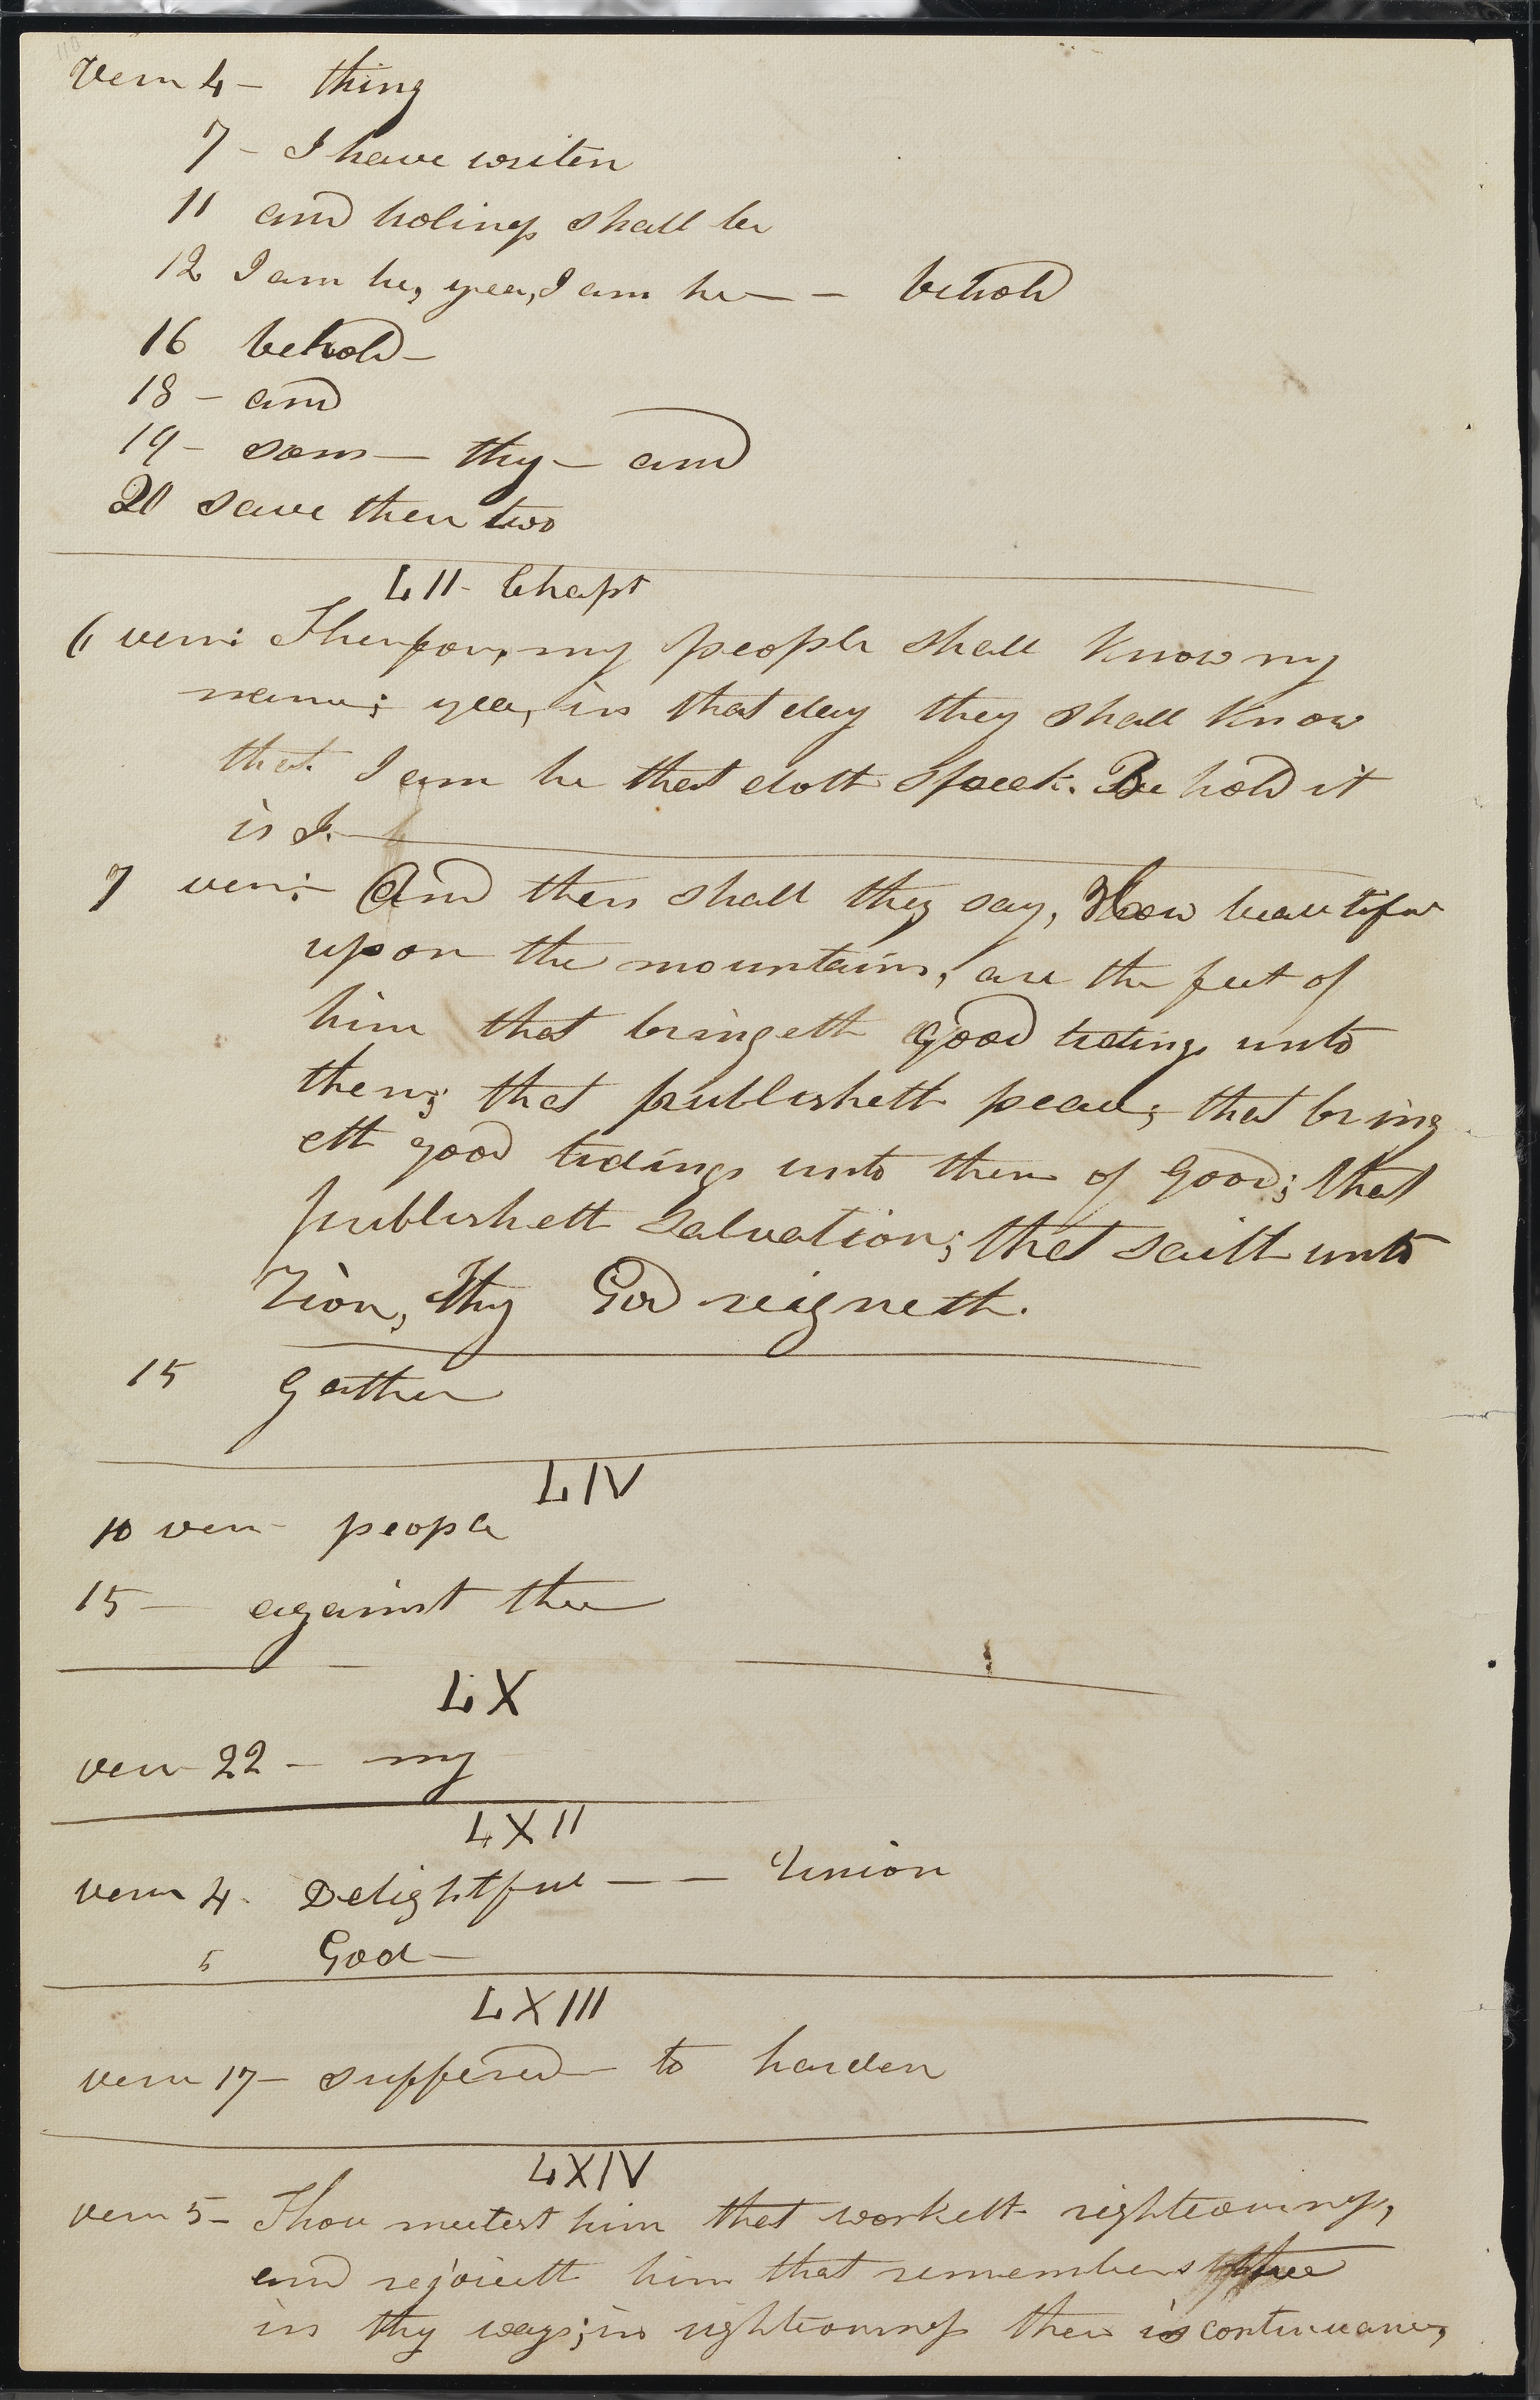 110
Verse 4 - thing
7 - I have writen
11 and holiness shall be
12 I am he, yea, I am he - - behold
16 behold -
18 - and
19 - sons - thy - and
20 save these two
LII - Chapt
6 verse: Therefore, my people shall know my
name; yea, in that day they shall know
that I am he that doth speak. Behold it
is I. -
7 verse: And then shall they say, How beautiful
upon the mountains, are the feet of
him that bringeth good tidings unto
them; that publisheth peace; that bring
eth good tidings unto them of good; that
publisheth salvation; that saith unto
Zion, Thy God reigneth.
15 Gather
LIV
10 verse - people
15 - against thee
LX
verse 22 - my
LXII
verse 4. Delightful - - Union
5 God -
LXIII
verse 17 - suffered - to harden
LXIV
verse 5 - Thou meetest him that worketh righteousness,
and rejoiceth him that remembers thee
in thy ways; in righteousness there is continuance,